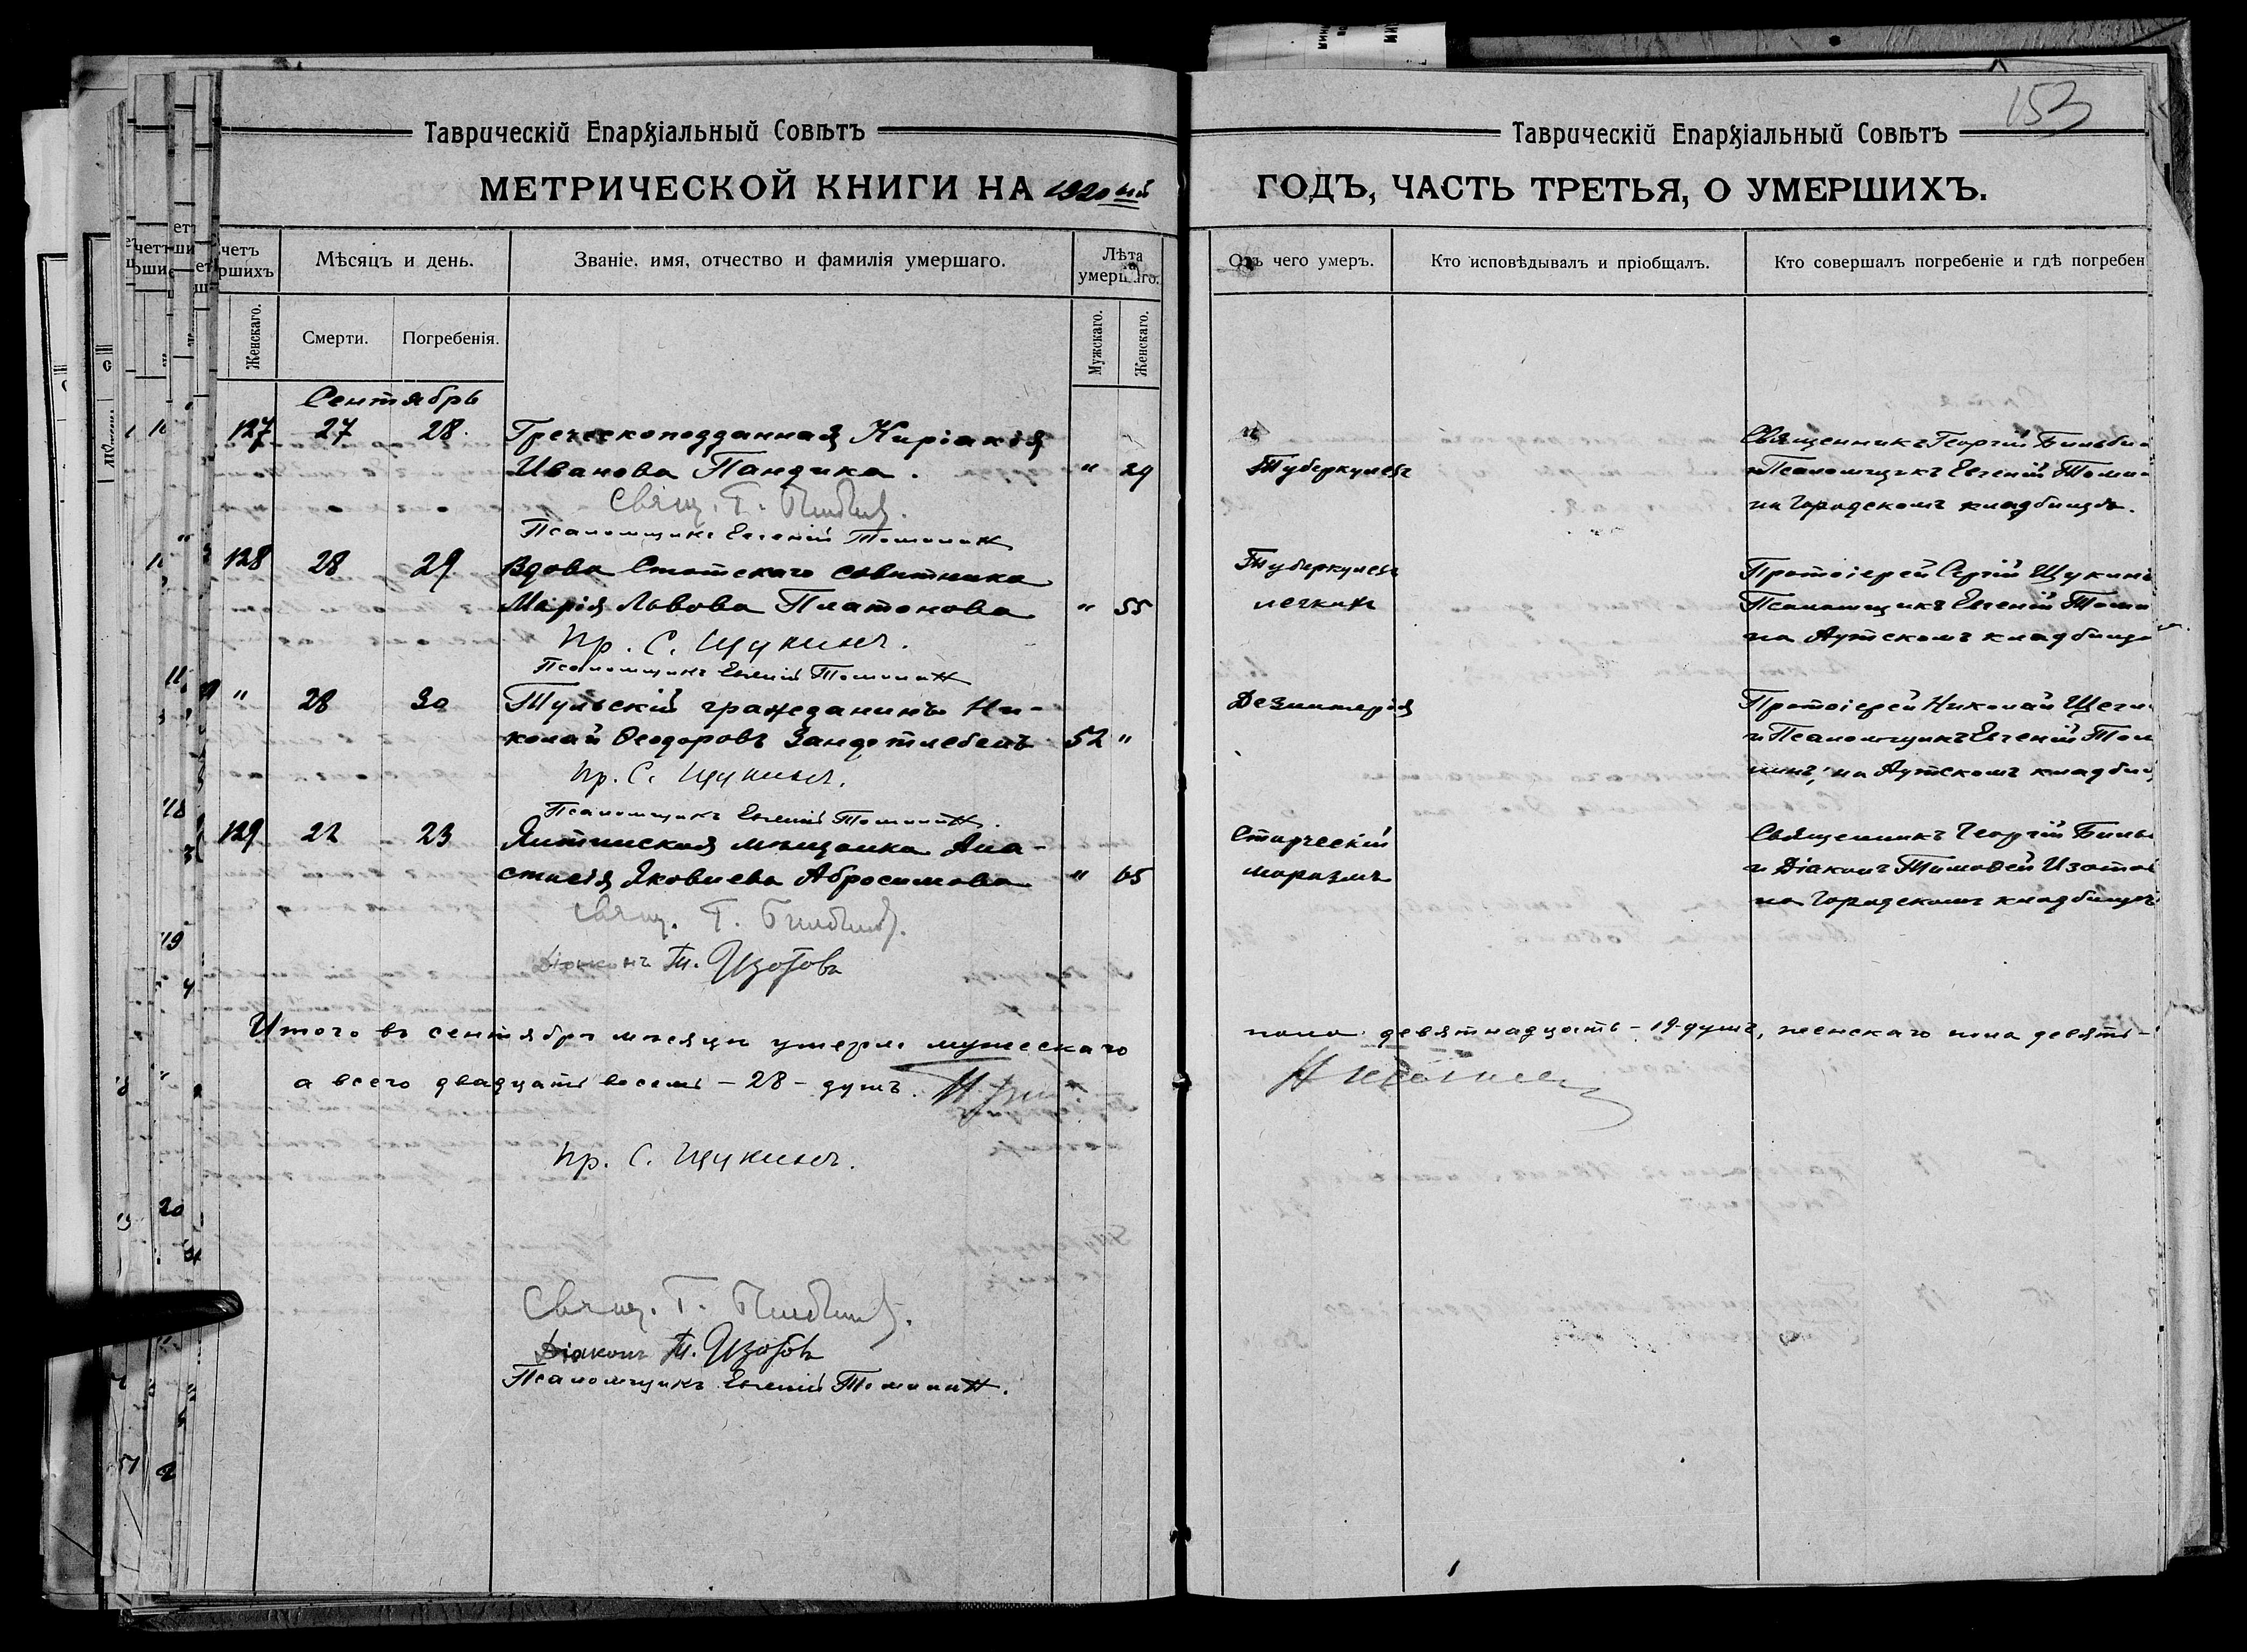 153
Таврическій Епархіальный Совѣтъ
МЕТРИЧЕСКОЙ КНИГИ НА 1920 ый
Таврическій Епархіальный Совѣтъ
ГОДЪ, ЧАСТЬ ТРЕТЬЯ, О УМЕРШИХЪ.
четъ
ршихъ
Мѣсяцъ и день.
Званіе, имя, отчество и фамилія умершаго.
Лѣта
умершаго.
Отъ чего умеръ.
Кто исповѣдывалъ и пріобщалъ.
Кто совершалъ погребеніе и гдѣ погребен
Женскаго.
Смерти.
Погребенія.
Мужскаго.
Женскаго.
Сентябрь
127 27 28 Греческоподданная Киріакія
Иванова Пандика. " 29
Свящ. Г.
Псаломщикъ Евгеній Томинъ
Туберкулезъ
Священникъ Георгій
и Псаломщикъ Евгеній Томи
на Городскомъ кладбищѣ.
128 28 29 Вдова Статскаго совѣтника
Марія Львова Платонова " 55
Пр. С. Щукинъ.
Псаломщикъ Евгеній Томинъ
Туберкулезъ
легкихъ
Протоіерей Сергій Щукинъ
Псаломщикъ Евгеній Томи
на Аутскомъ кладбищѣ
" 28 30 Тульскій гражданинъ Ни-
колай Ѳеодоровъ 52 "
Пр. С. Щукинъ.
Псаломщикъ Евгеній Томинъ.
Дезинтерія
Протоіерей Николай
и Псаломщикъ Евгеній Том
инъ, на Аутскомъ кладби
129 22 23 Ялтинская мѣщанка Ана-
стасія Яковлева Абросимова " 65
Свящ. Г.
Діаконъ Т. Изотовъ
Старческій
маразмъ
Священникъ Георгій
и Діаконъ Тимоѳей Изотов
на Городскомъ кладбищѣ
Итого въ сентябрѣ мѣсяцѣ умерло мужескаго
пола девятнадцать - 19 душъ, женскаго пола девять -
а всего двадцать восемь - 28 - душъ.
Пр. С. Щукинъ.
Свящ. Г.
Діаконъ Т. Изотовъ
Псаломщикъ Евгеній Томинъ.